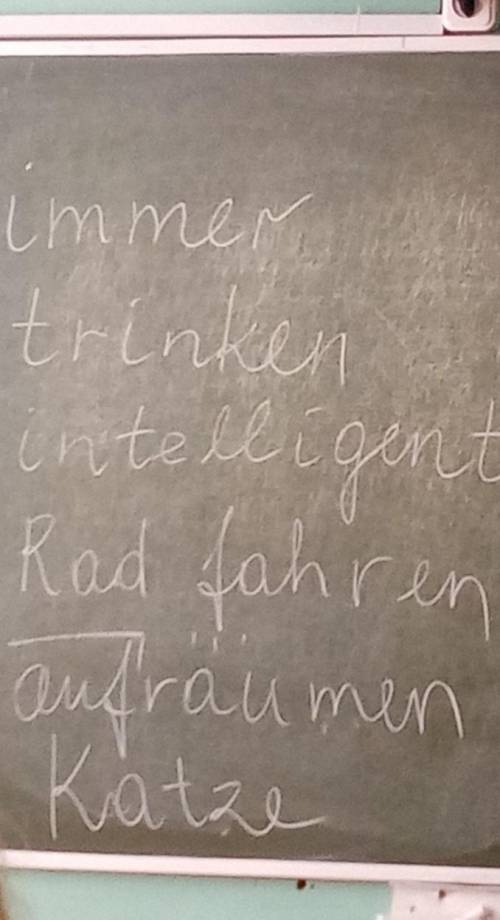 immer
trinken
intelligent
Rad fahren
aufräumen
Katze